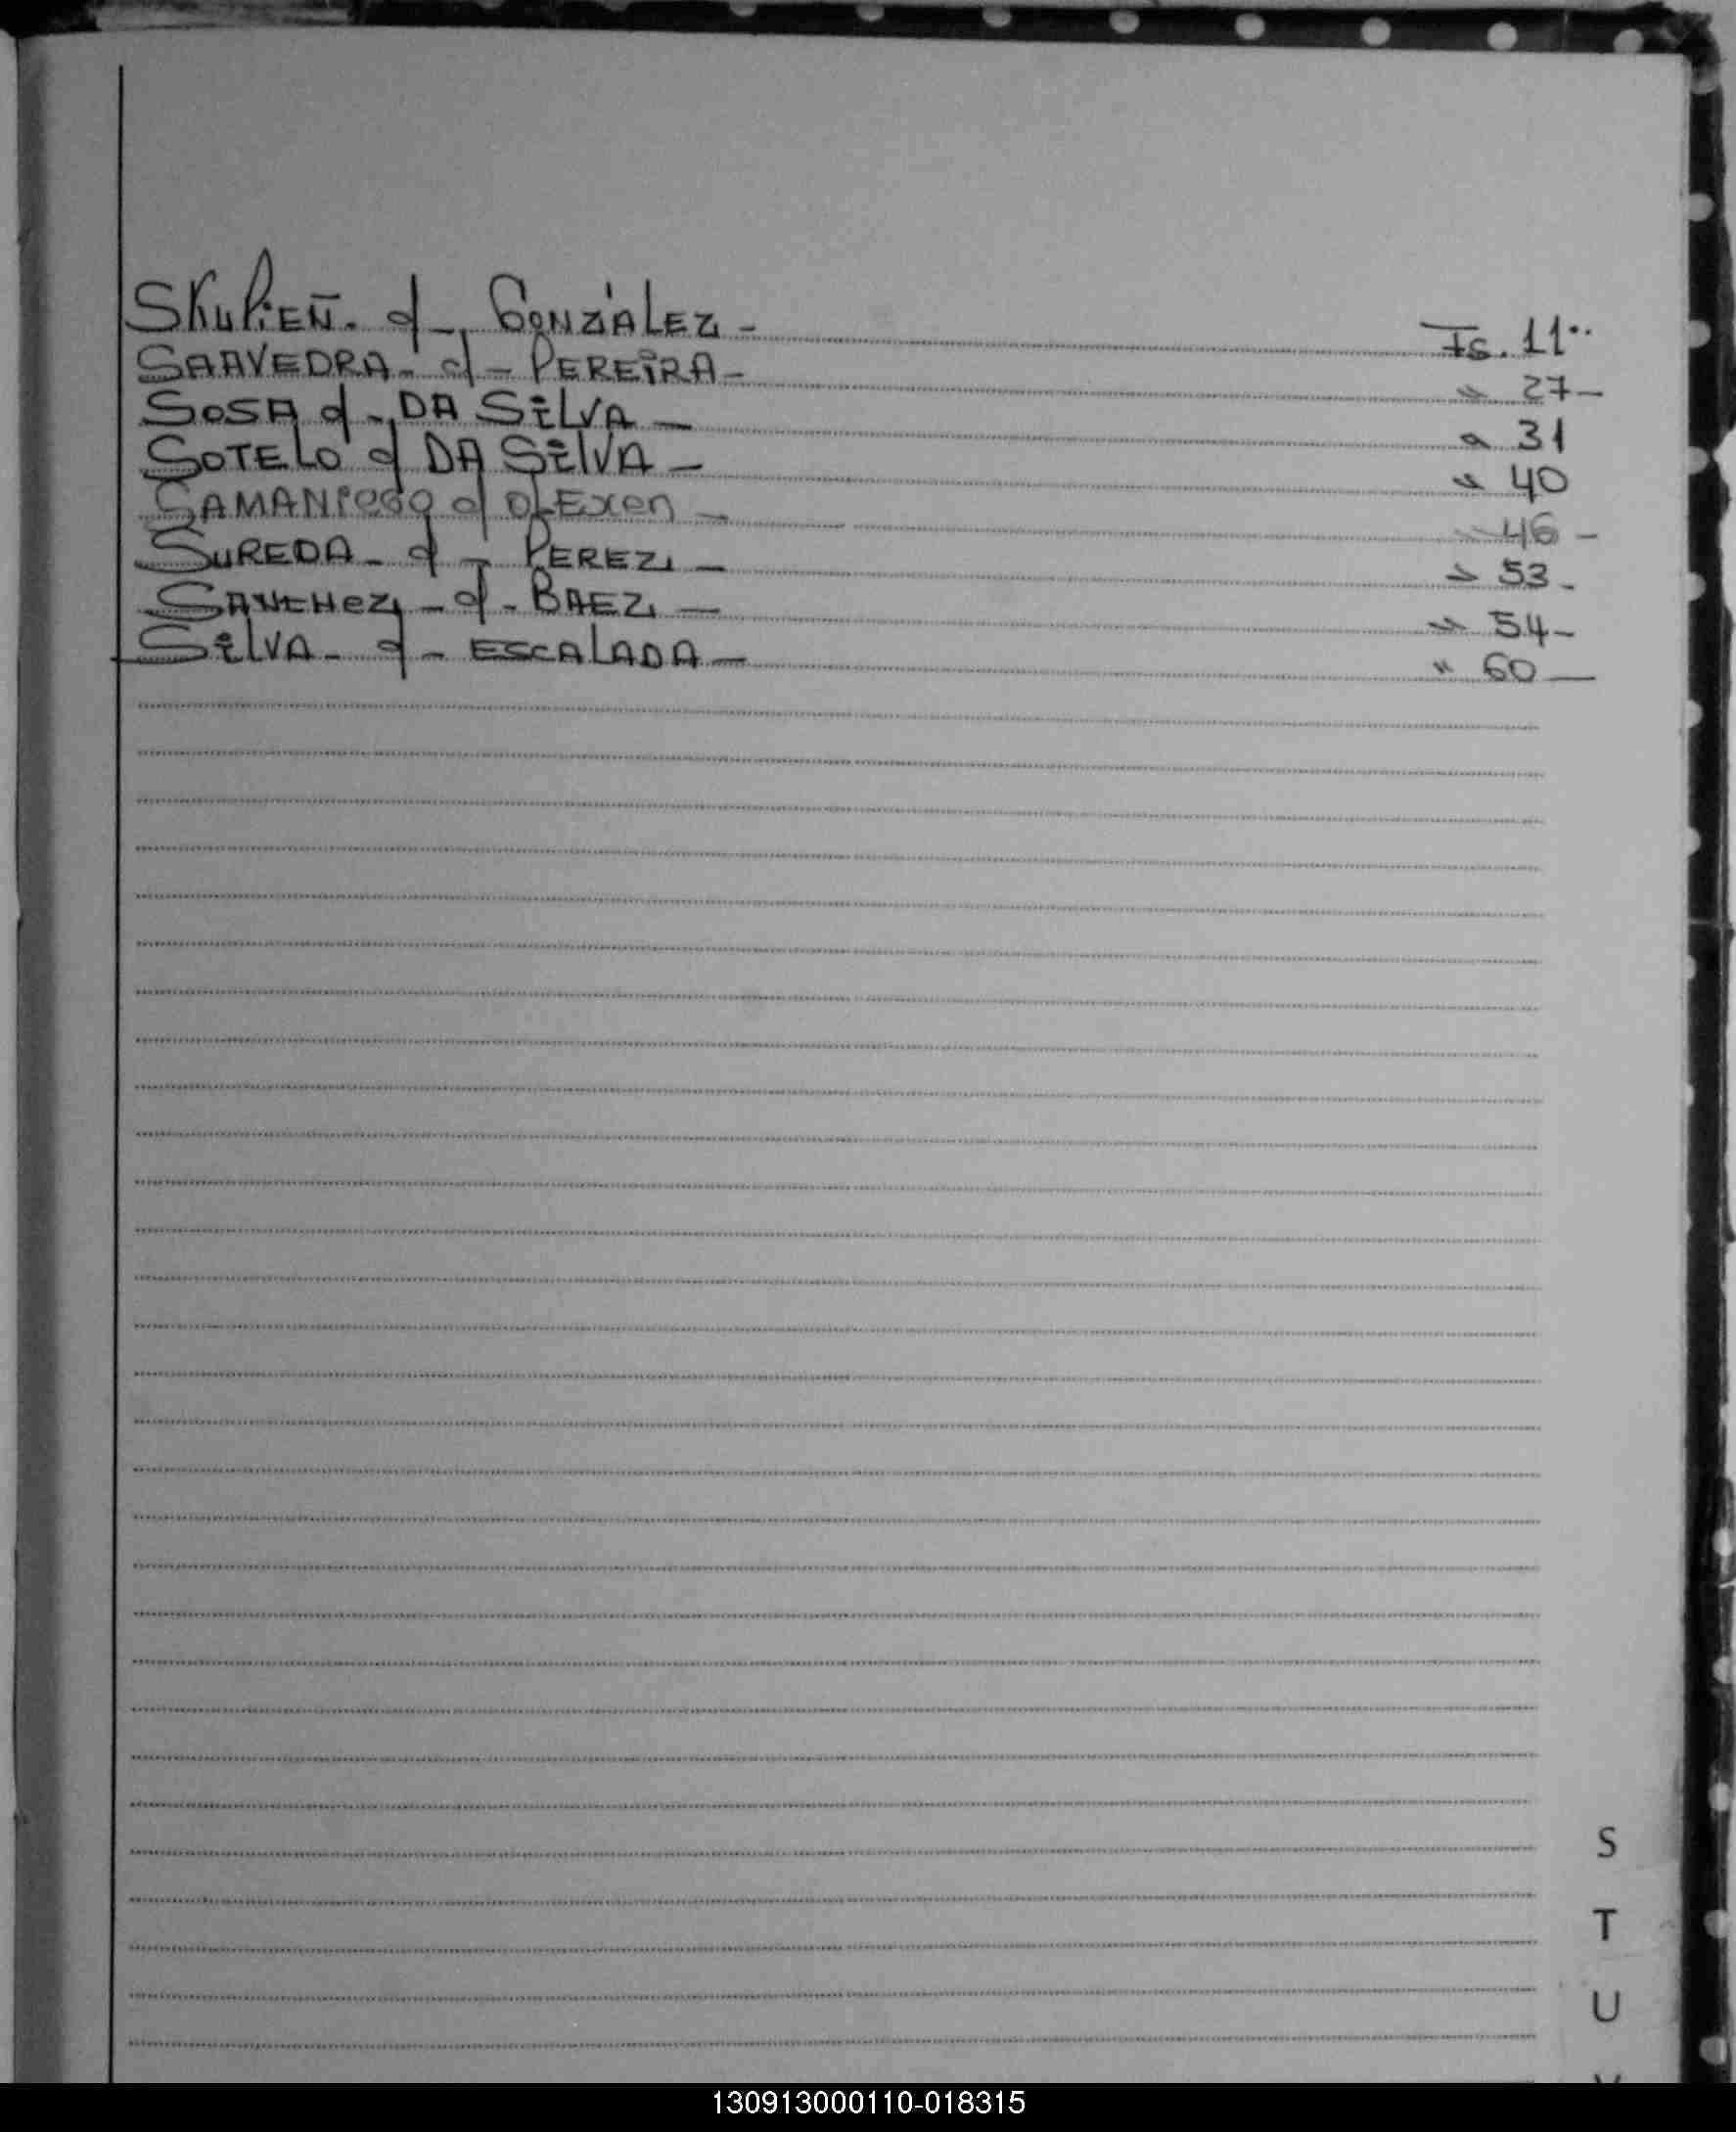 SKUPIEÑ. d - GONZÁLEZ - Fs. 11"
SAAVEDRA - d - PEREIRA - " 27 -
SOSA d - DA SILVA - " 31
SOTELO d DA SILVA - " 40
SAMANIEGO d OLEXEN - " 46 -
SUREDA - d - PEREZ - " 53 -
SANCHEZ - d - BAEZ - " 54 -
SILVA - d - ESCALADA - " 60 -
S
T
U
130913000110-018315